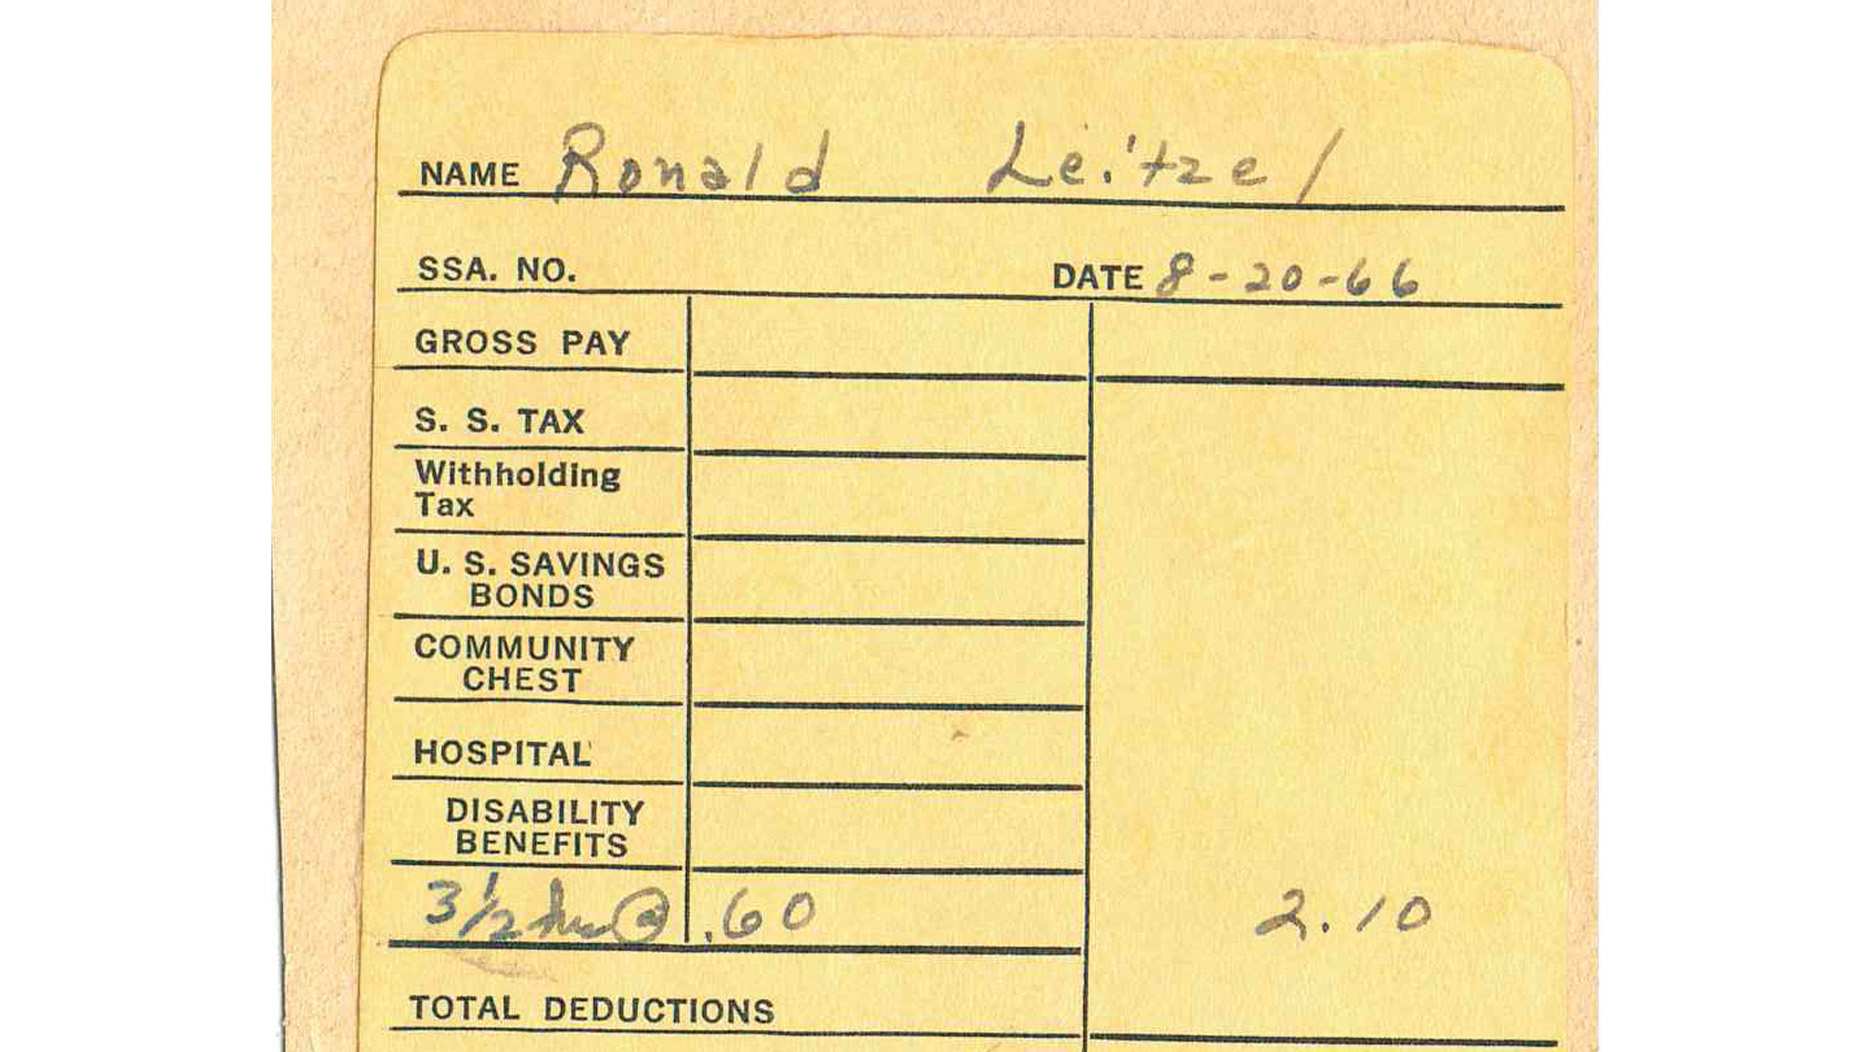 NAME Ronald Leitzel
SSA. NO. DATE 8-20-66
GROSS PAY
S. S. TAX
Withholding
Tax
U. S. SAVINGS
BONDS
COMMUNITY
CHEST
HOSPITAL
DISABILITY
BENEFITS
3½ hrs @ .60 2.10
TOTAL DEDUCTIONS